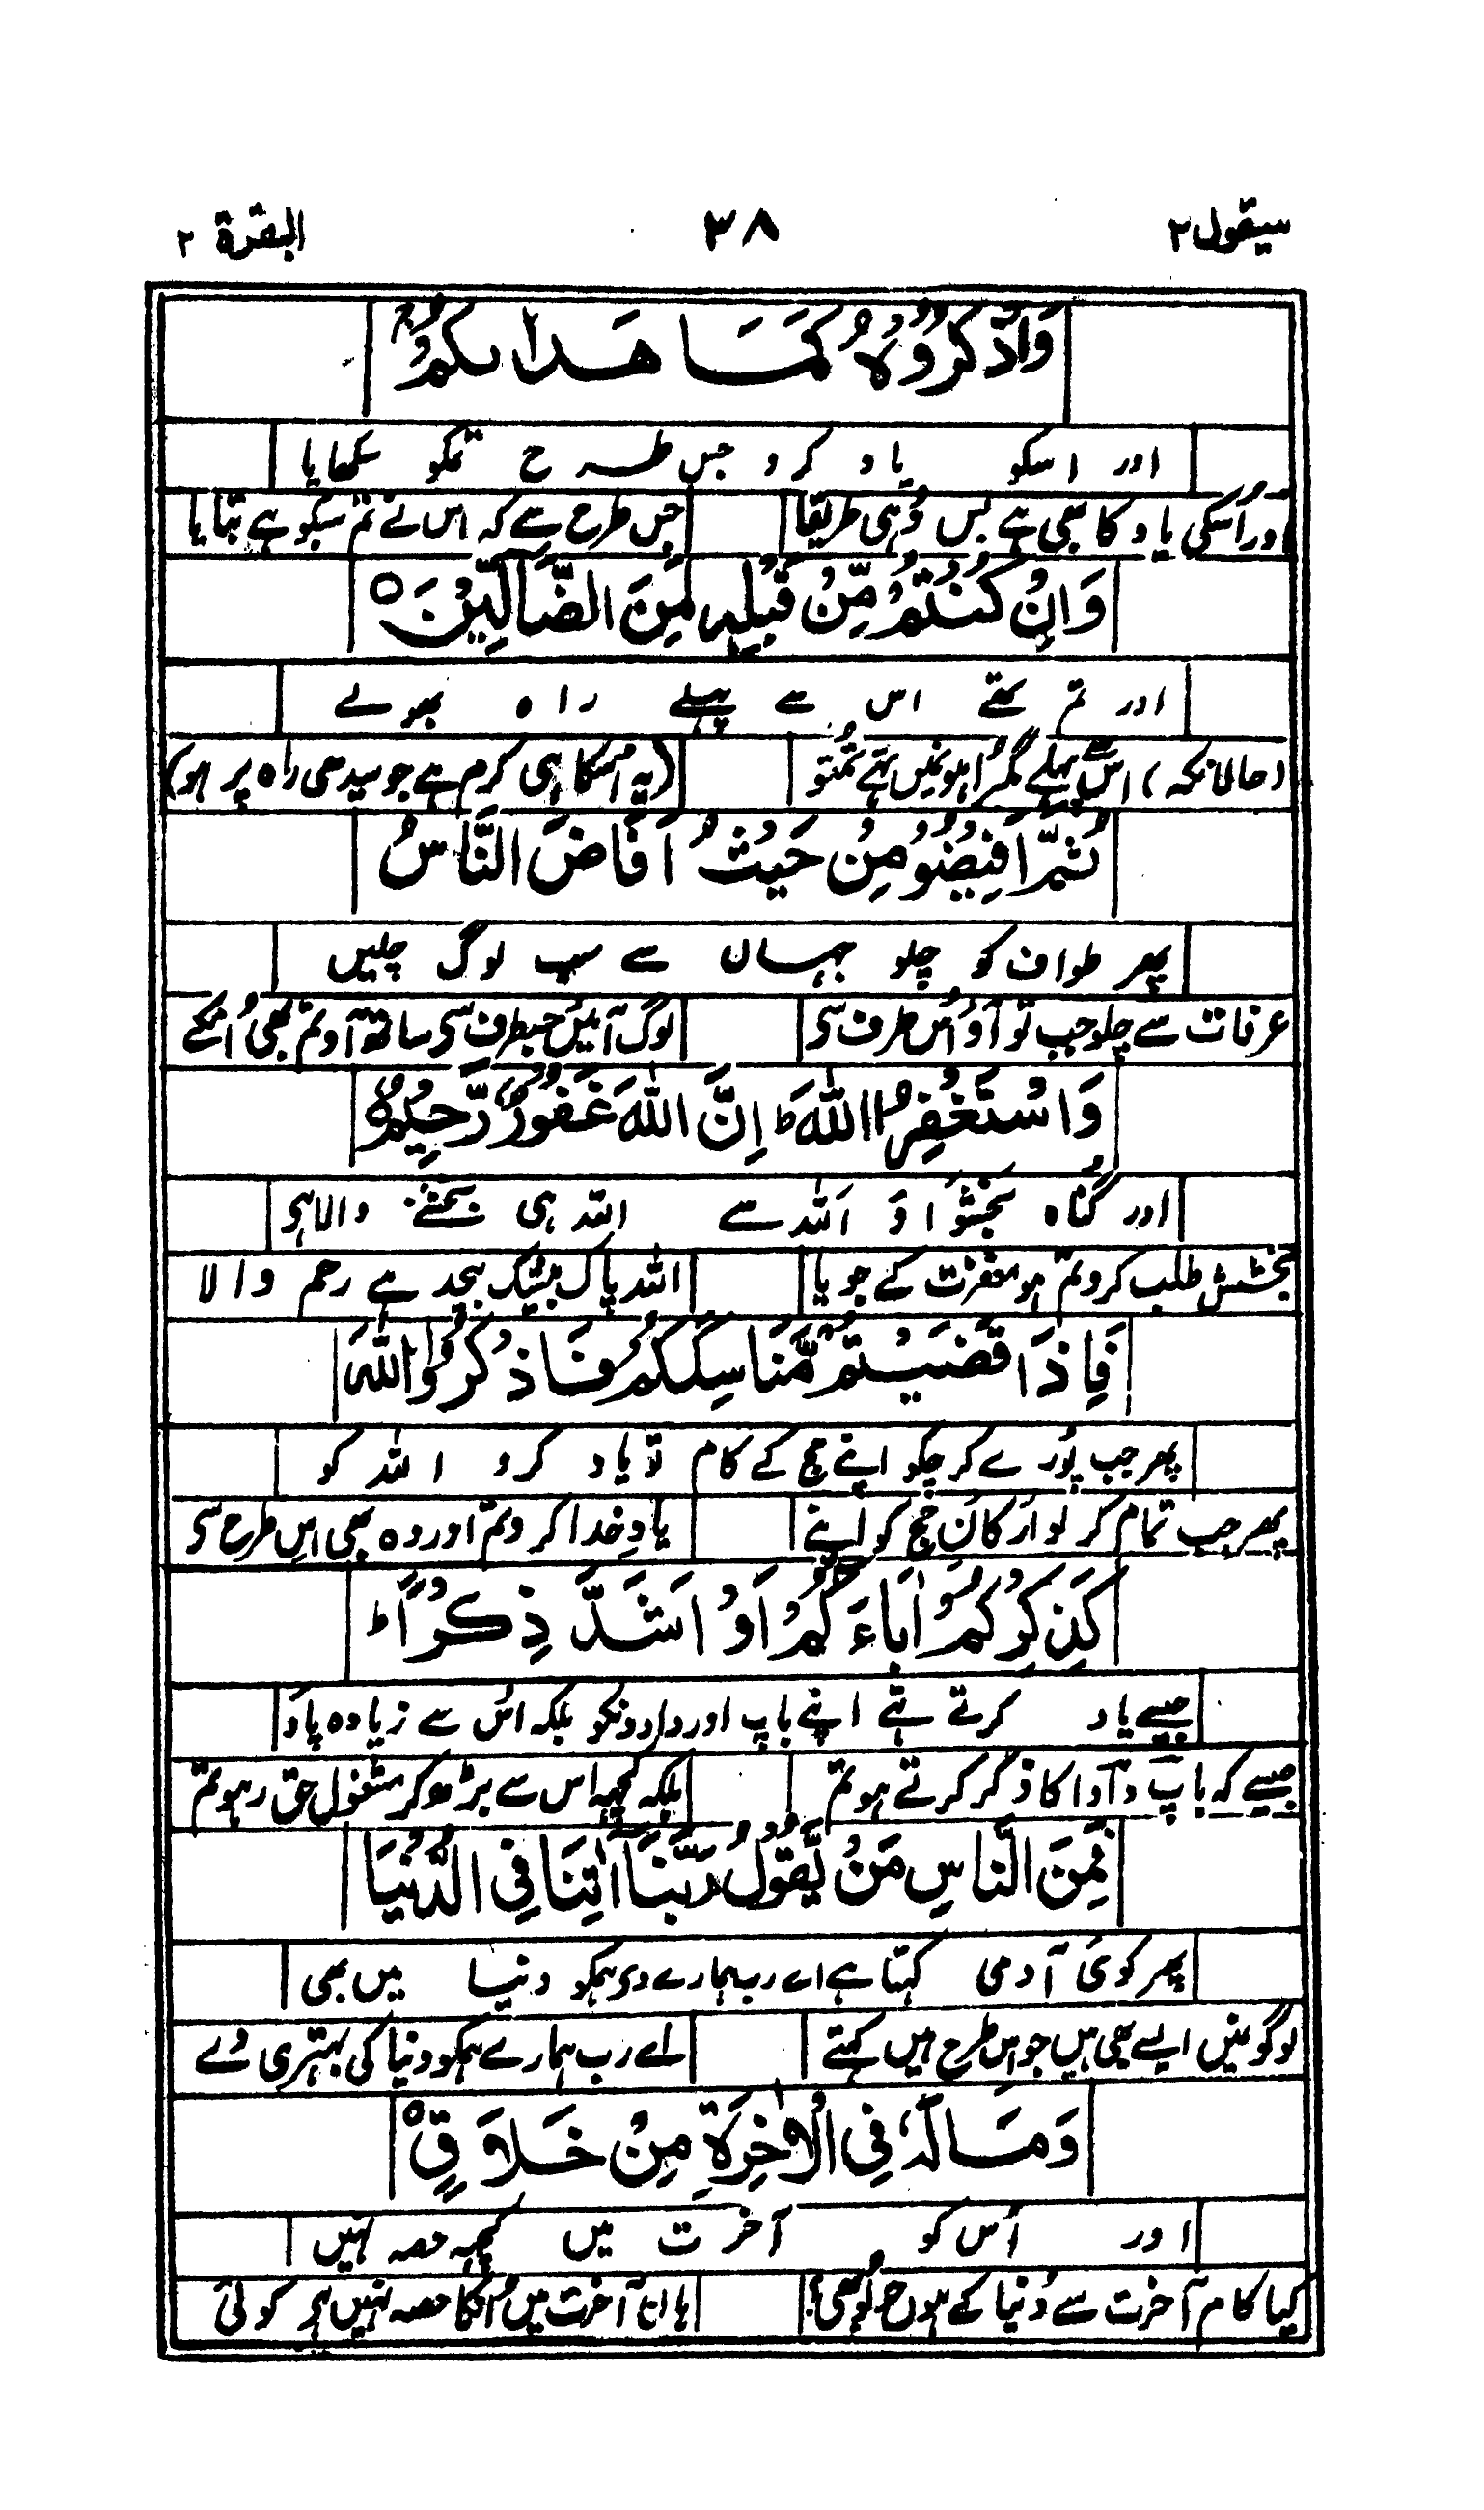 سیقول ۲ ۳۸ البقرة ۲
وَاذْكُرُوْهُ كَمَا هَدٰىكُمْ ۚ
اور اسکو یاد کرو جس طرح تمکو سکھایا
اور اُسکی یاد کا بھی ہے بس وُہی طریقا جس طرح سے کہ اس نے تم سبکو ہے بتایا
وَاِنْ كُنْتُمْ مِّنْ قَبْلِهٖ لَمِنَ الضَّآلِّيْنَ ○
اور تم تھے اس سے پہلے راہ بھولے
(حالانکہ) اس سے پہلے گمراہونمیں تھے تمُتو (یہ اسکا ہی کرم ہے جو سیدھی راہ پر ہو)
ثُمَّ اَفِيْضُوْا مِنْ حَيْثُ اَفَاضَ النَّاسُ
پھر طواف کو چلو جہاں سے سب لوگ چلیں
عرفات سے چلو جب تو آؤ اُس طرف سی لوگ آئیں جسطرف سی ساتھ آؤ تم بھی اُنکے
وَاسْتَغْفِرُوا اللّٰهَ ؕ اِنَّ اللّٰهَ غَفُوْرٌ رَّحِيْمٌ ○
اور گناہ بخشواؤ اللہ سے اللہ ہی بخشنے والا ہی
بخشش طلب کرو تم ہو مغفرت کے جویا اللہ پاک بیشک بیحد ہے رحم والا
فَاِذَا قَضَيْتُمْ مَّنَاسِكَكُمْ فَاذْكُرُوا اللّٰهَ
پھر جب پُورے کر چکو اپنے حج کے کام تو یاد کرو اللہ کو
پھر جب تمام کر لو ارکانِ حج کو اپنے یادِ خدا کرو تم اور وہ بھی اس طرح سی
كَذِكْرِكُمْ اٰبَآءَكُمْ اَوْ اَشَدَّ ذِكْرًا ؕ
جیسے یاد کرتے تھے اپنے باپ اور دادونکو بلکہ اُس سے زیادہ یاد
جیسے کہ باپ دادا کا ذکر کرتے ہو تم بلکہ کچھ اس سے بڑھ کر مشغول حق رہو تم
فَمِنَ النَّاسِ مَنْ يَّقُوْلُ رَبَّنَآ اٰتِنَا فِي الدُّنْيَا
پھر کوئی آدمی کہتا ہے اے رب ہمارے دی ہمکو دنیا میں بھی
لوگونمیں ایسے بھی ہیں جو اس طرح ہیں کہتے اے رب ہمارے ہمکو دنیا کی بہتری دے
وَمَا لَهٗ فِي الْاٰخِرَةِ مِنْ خَلَاقٍ ○
اور اُس کو آخرت میں کچھ حصہ نہیں
کیا کام آخرت سے دُنیا کے ہوں جو لوبھی؟ ہاں آخرت میں اُنکا حصہ نہیں ہی کوئی